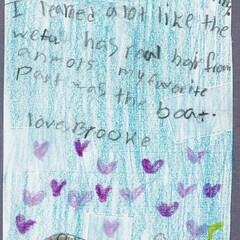 I learned a lot like the
weta has real hair from
anmols my favorite
Part was the boat.
love, Brooke